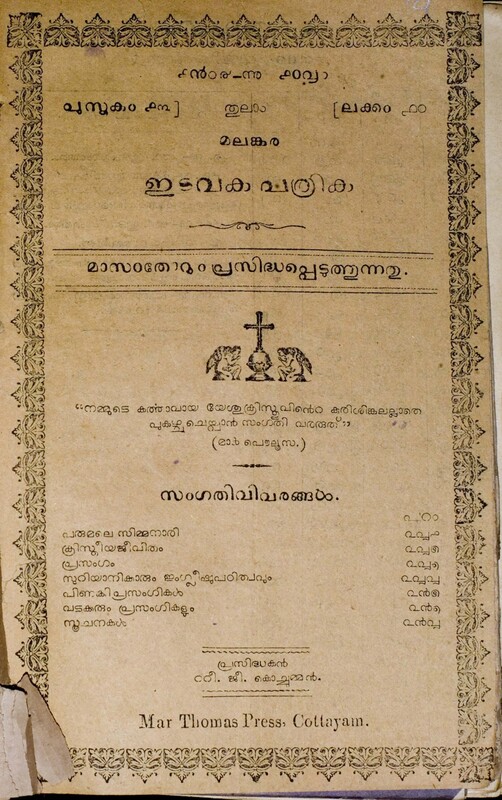 ൧൯൦൪-ന്നു ൧൦൮൦
പുസ്തകം ൧൩] തുലാം [ലക്കം ൧൦
മലങ്കര
ഇടവക പത്രിക
മാസംതോറും പ്രസിദ്ധപ്പെടുത്തുന്നതു.
“നമ്മുടെ കൎത്താവായ യേശുക്രിസ്തുവിന്റെ കുരിശിങ്കലല്ലാതെ
പുകഴ്ചചെയ്വാൻ സംഗതി വരരുത്”
(മാർ പൌലൂസ.)
സംഗതിവിവരങ്ങൾ.
പരുമലെ സിമ്മനാരി ൨൮൧
ക്രിസ്തീയജീവിതം ൨൮൫
പ്രസംഗം ൨൮൭
സുറിയാനികാരും ഇംഗ്ലീഷുപഠിത്വവും ൨൮൮
പിണക്കിപ്രസംഗികൾ ൨൯൫
വടകരും പ്രസംഗികളും ൨൯൭
സൂചനകൾ ൨൯൮
പ്രസിദ്ധകൻ
ററി. ജീ. കൊച്ചുമ്മൻ.
Mar Thomas Press, Cottayam.